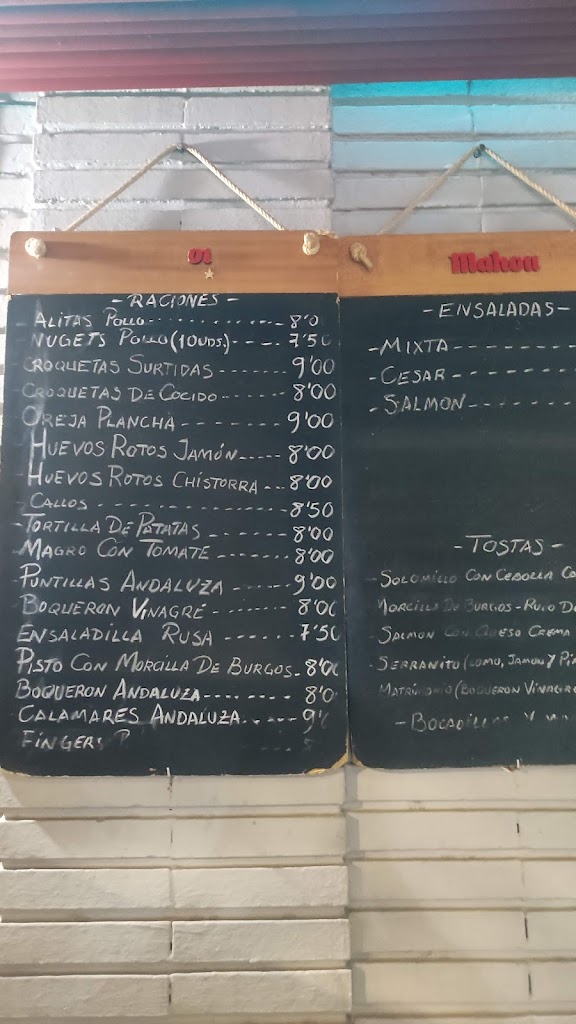 Mahou
- RACIONES -
- ALITAS POLLO - - - 8'0
- NUGETS POLLO (10 UDS.) - - - 7'50
- CROQUETAS SURTIDAS - - - 9'00
- CROQUETAS DE COCIDO - - - 8'00
- OREJA PLANCHA - - - 9'00
- HUEVOS ROTOS JAMÓN - - - 8'00
- HUEVOS ROTOS CHISTORRA - - - 8'00
- CALLOS - - - 8'50
- TORTILLA DE PATATAS - - - 8'00
- MAGRO CON TOMATE - - - 8'00
- PUNTILLAS ANDALUZA - - - 9'00
- BOQUERON VINAGRE - - - 8'00
- ENSALADILLA RUSA - - - 7'50
- PISTO CON MORCILLA DE BURGOS - 8'00
- BOQUERON ANDALUZA - - - 8'0
- CALAMARES ANDALUZA - - - 9'
FINGERS P
- ENSALADAS -
- MIXTA - - -
- CESAR - - -
- SALMON - - -
- TOSTAS -
- SOLOMILLO CON CEBOLLA
- MORCILLA DE BURGOS -
- SALMON CON QUESO CREMA
- SERRANITO (LOMO, JAMON Y
- MATRIMONIO (BOQUERON VINAGRE
- BOCADILLOS Y